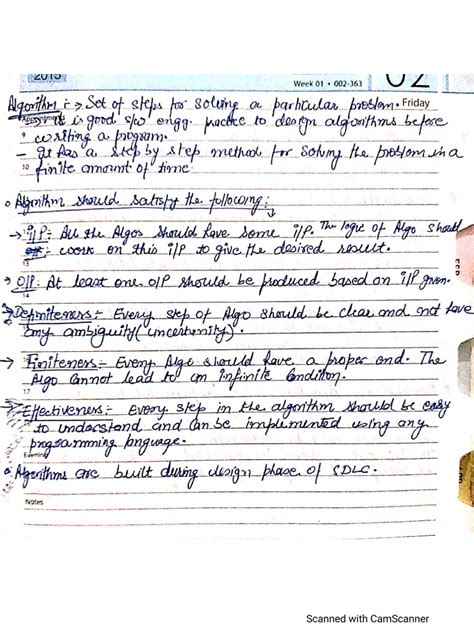 2015
Week 01 • 002-363
02
Friday
Algorithm :-> Set of steps for solving a particular problem.
Appointments
-> it is good s/w engg. practice to design algorithms before
9 writing a program.
- It has a step by step method for solving the problem in a
10 finite amount of time
o Algorithm should satisfy the following:
-> I/P:- All the Algos should have some i/P. The logic of Algo should
work on this i/P to give the desired result.
-> O/P. At least one O/P should be produced based on i/P given.
14
-> Definiteness:- Every step of Algo should be clear and not have
any ambiguity (uncertainity).
-> Finiteness:- Every Algo should have a proper end. The
Algo cannot lead to an infinite Condition.
17
-> Effectiveness:- Every step in the algorithm should be easy
to understand and can be implemented using any
programming language.
Evening
o Algorithms are built during design phase of SDLC.
Notes
FEB
Scanned with CamScanner